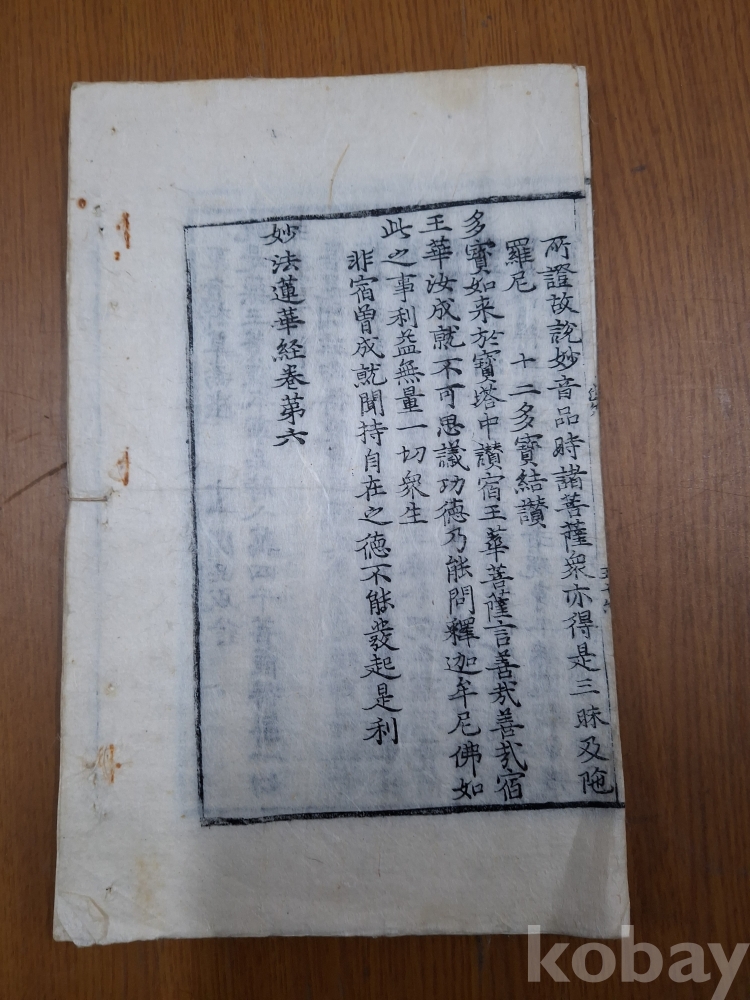 所證故說妙音品時諸菩薩衆亦得是三昧及陁
羅尼 十二多寶結讃
多寶如来於寶塔中讃宿王華菩薩言善㢤善㢤宿
王華汝成就不可思議功德乃能問釋迦牟尼佛如
此之事利益無量一切衆生
非宿曾成就聞持自在之德不能發起是利
妙法蓮華経卷第六
kobay